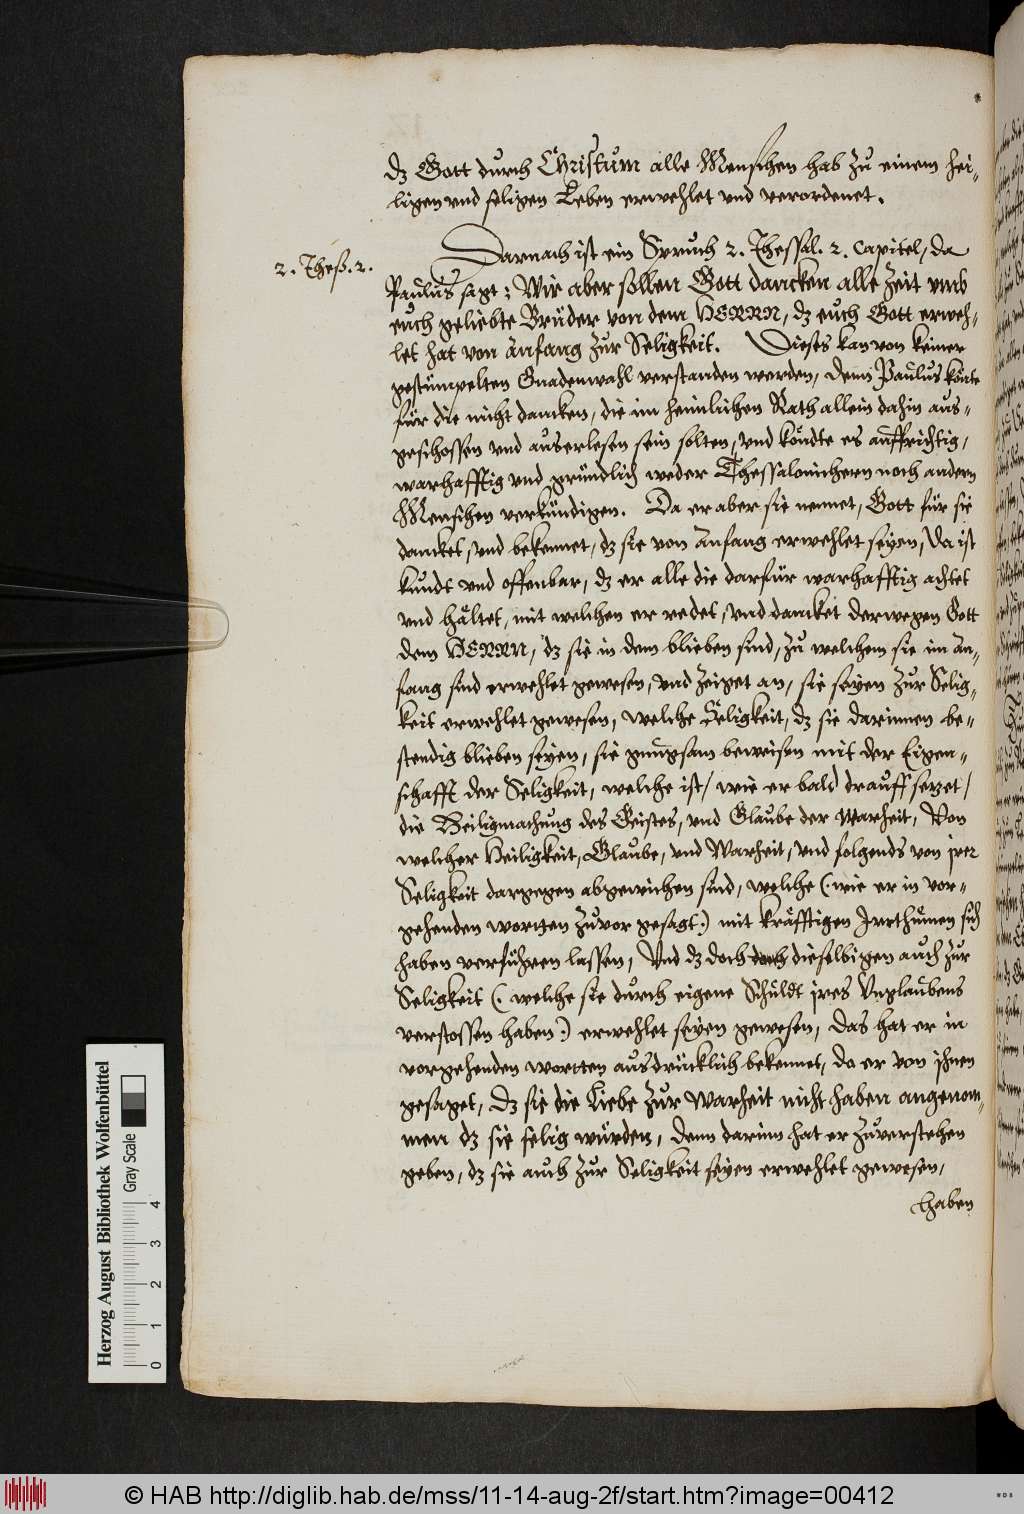 dz Gott durch Christum alle Menschen hab zu einem hei-
ligen vnd seligen Leben erwehlet vnd verordenet.
2. Theß. 2.
Darnach ist ein Spruch 2. Thessal. 2. Capitel, da
Paulus sagt: Wir aber sollen Gott dancken alle Zeit vmb
euch geliebte Brüder von dem HERRN, dz euch Gott erweh-
let hat von Anfang zur Seligkeit. Dieses kan von keiner
gestümpelten Gnadenwahl verstanden werden, denn Paulus könte
für die nicht dancken, die im heimlichen Rath allein dahin aus-
geschossen vnd auserlesen sein solten, vnd köndte es auffrichtig,
warhafftig vnd gründlich weder Thessalonichern noch andern
Menschen verkündigen. Da er aber sie nennet, Gott für sie
dancket, vnd bekennet, dz sie von Anfang erwehlet seyen, da ist
kundt vnd offenbar, dz er alle die darfür warhafftig achtet
vnd hältet, mit welchen er redet, vnd dancket derwegen Gott
dem HERRN, dz sie in dem blieben sind, zu welchem sie im An-
fang sind erwehlet gewesen, vnd zeiget an, sie seyen zur Selig-
keit erwehlet gewesen, welche Seligkeit, dz sie darinnen be-
stendig blieben seyen, sie gnugsam beweisen mit der Eigen-
schafft der Seligkeit, welche ist, wie er bald drauff setzet,
die Heiligmachung des Geistes, vnd Glaube der Warheit, Von
welcher Heiligkeit, Glaube, vnd Warheit, vnd folgends von irer
Seligkeit dargegen abgewichen sind, welche (: wie er in vor-
gehenden wortten zuvor gesagt :) mit kräfftigen Irrthumen sich
haben verführen lassen, Vnd dz doch dieselbigen auch zur
Seligkeit (: welche sie durch eigene Schuldt ires Vnglaubens
verstossen haben :) erwehlet seyen gewesen, das hat er in
vorgehenden wortten ausdrücklich bekennet, da er von ihnen
gesaget, dz sie die Liebe zur Warheit nicht haben angenom-
men dz sie selig würden, denn darinn hat er zuverstehen
geben, dz sie auch zur Seligkeit seyen erwehlet gewesen,
haben
Herzog August Bibliothek Wolfenbüttel
Gray Scale
0 1 2 3 4
© HAB http://diglib.hab.de/mss/11-14-aug-2f/start.htm?image=00412